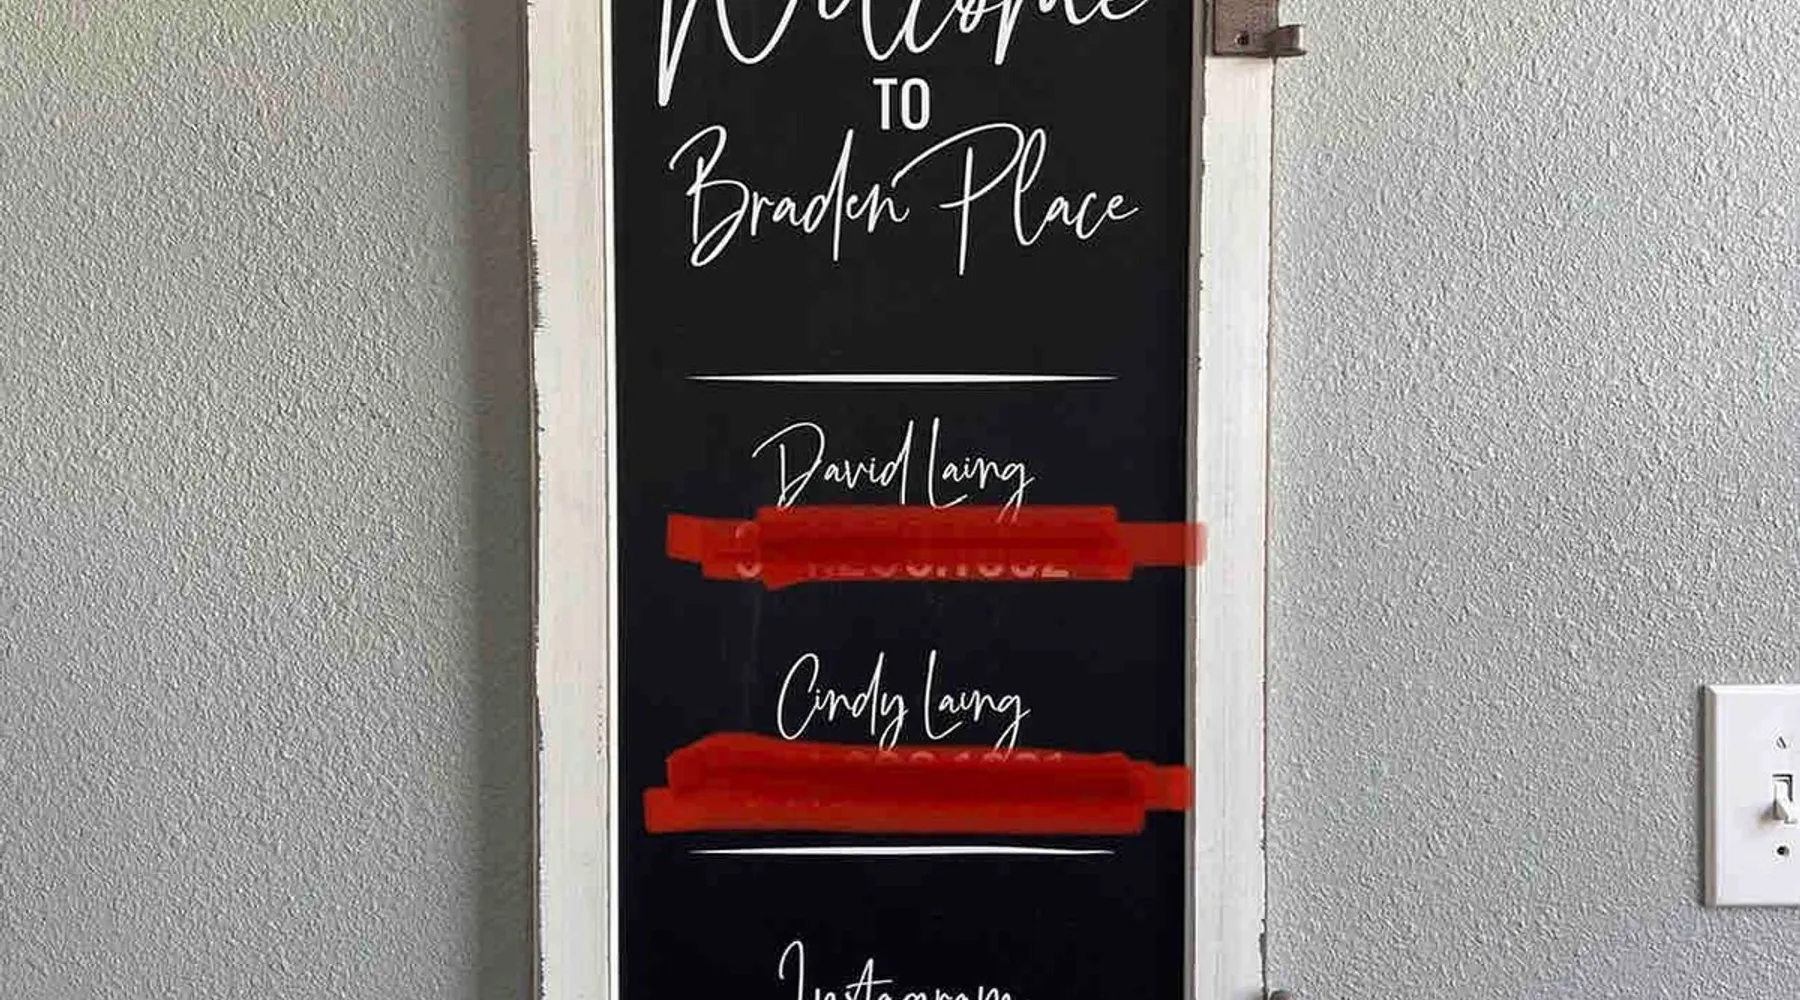 Welcome
TO
Braden Place
David Laing
Cindy Laing
Instagram